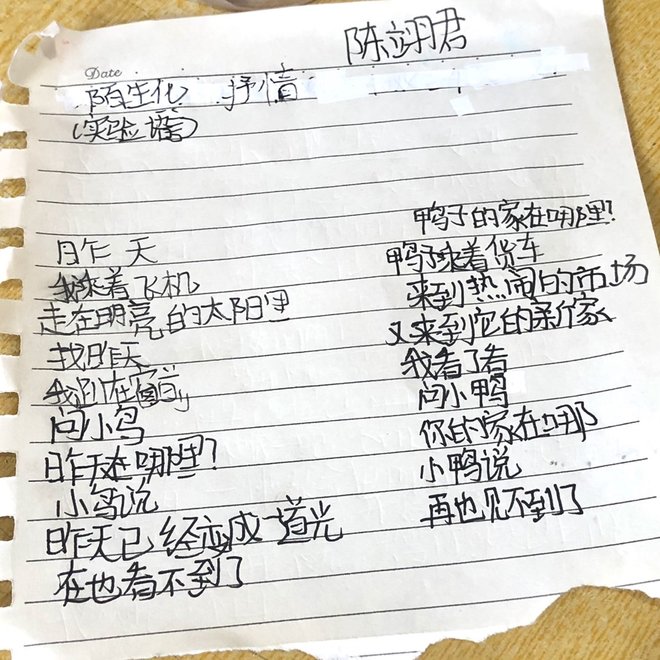 陈翊君
Date
陌生化 抒情
(实验语言)
昨天
我乘着飞机
走在明亮的太阳里
找昨天
我趴在窗前
问小鸟
昨天在哪里？
小鸟说
昨天已经变成一道光
在也看不到了
鸭子的家在哪里？
鸭子乘着货车
来到热闹的市场
又来到它的新家
我看了看
问小鸭
你的家在哪
小鸭说
再也见不到了